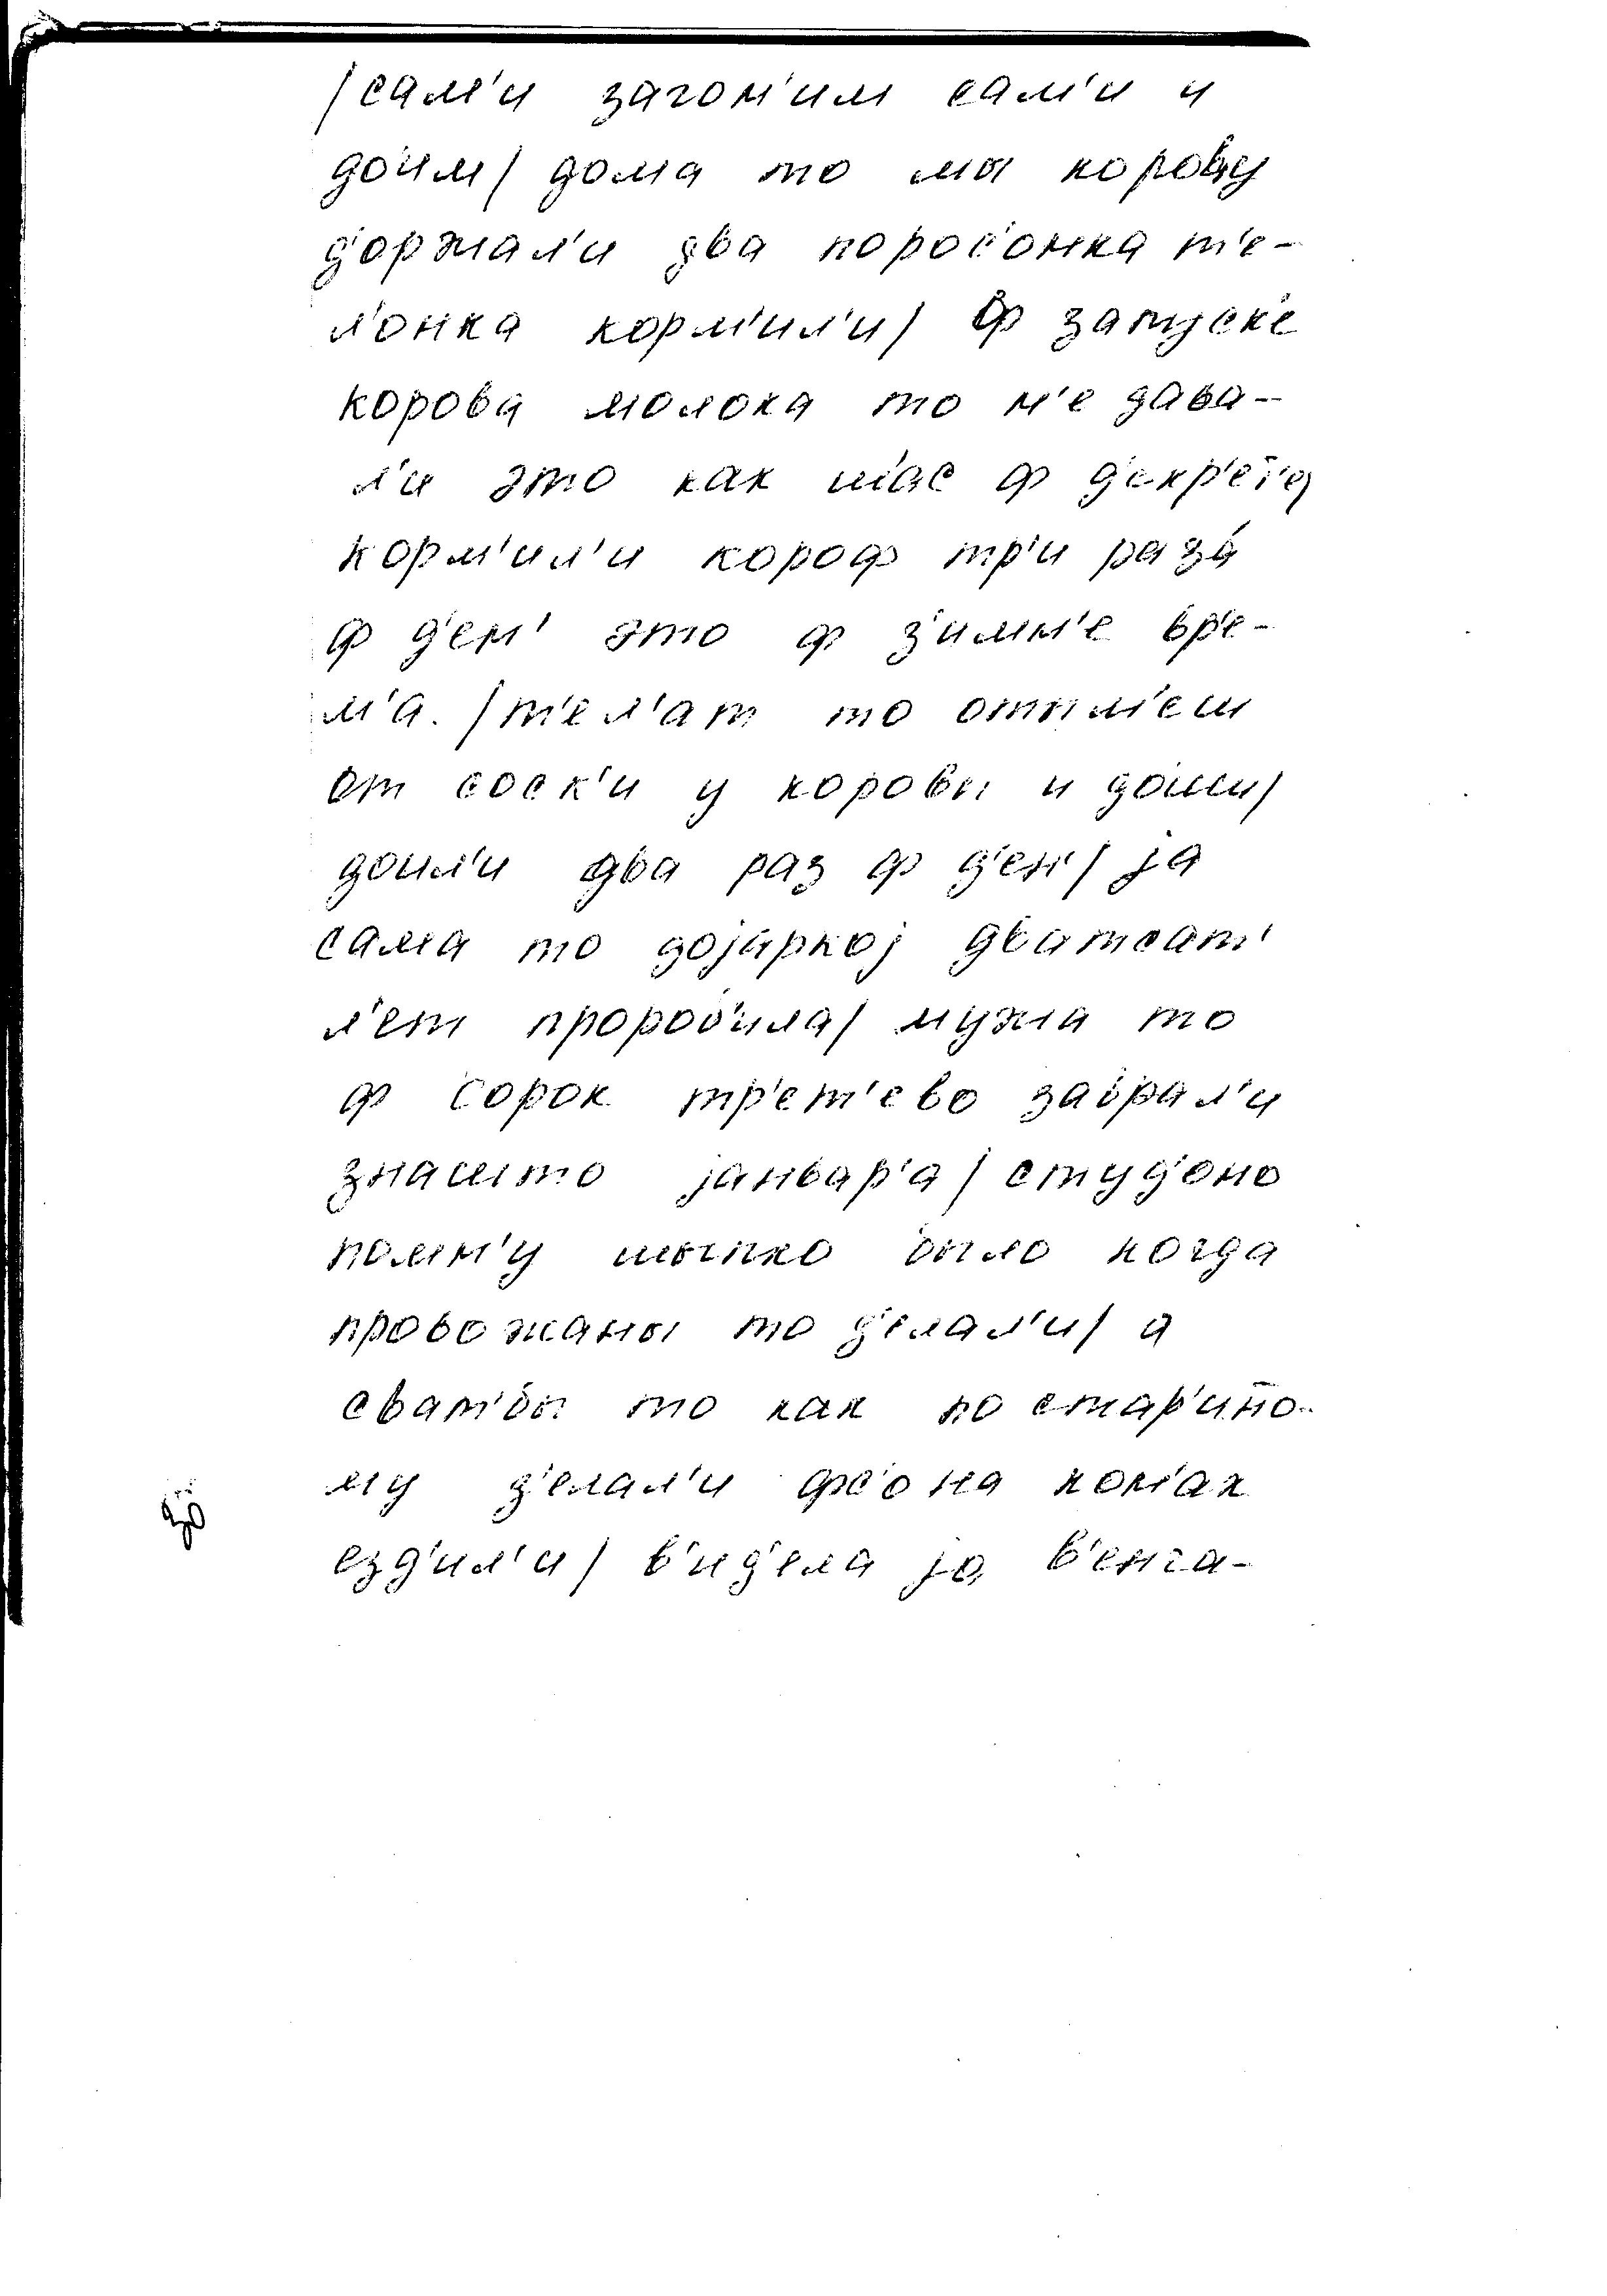 /сам'и загон'им сам'и и
доим/ дома то мы корову
д'оржал'и два порос'онка т'е-
л'онка корм'ил'и/ ф запуске
корова молока то н'е дава-
л'и это как шас ф д'екр'ет'е/
корм'ил'и короф тр'и раза́
ф д'ен' это ф з'имн'е вр'е-
м'а. /т'ел'ат то отым'еш
от соск'и у коровы и доиш/
доил'и два раз ф д'ен'/ jа
сама то доjаркоj дватсат'
л'ет проробила/ мужа то
ф сорок тр'ет'ево забрал'и
значто jанвар'а/ студ'оно
помн'у шыпко было когда
провожаны то д'елал'и/ а
сват'бы то как по стар'ино-
му д'елал'и фс'о на кон'ах
езд'ил'и/ в'ид'ела jа в'енча-